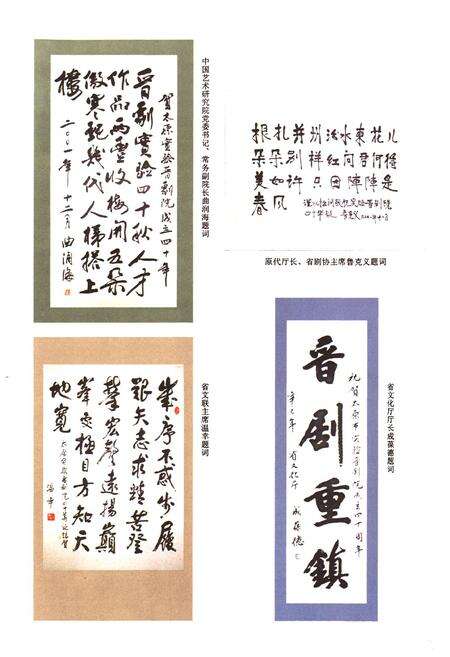 贺太原实验晋剧院成立四十年
晋劇實驗四十秋人才
作品两豐收梅開五朵
傲寒艳幾代人梯搭上
樓
二〇〇一年十二月曲润海
中国艺术研究院党委书记、常务副院长曲润海题词
根扎并州汾水東花儿
朵朵别样红问君何
美如许只因阵阵是
春风
原代厅长、省剧协主席鲁克义题词
歲序不惑步履
艱矢志求 苦登
攀宏聲遠揚巔
峯 極目方知天
地寬
温幸
省文联主席温幸题词
祝贺太原市实验晋剧院成立四十周年
晋剧重鎮
辛巳年 省文化厅 成葆德
省文化厅厅长成葆德题词